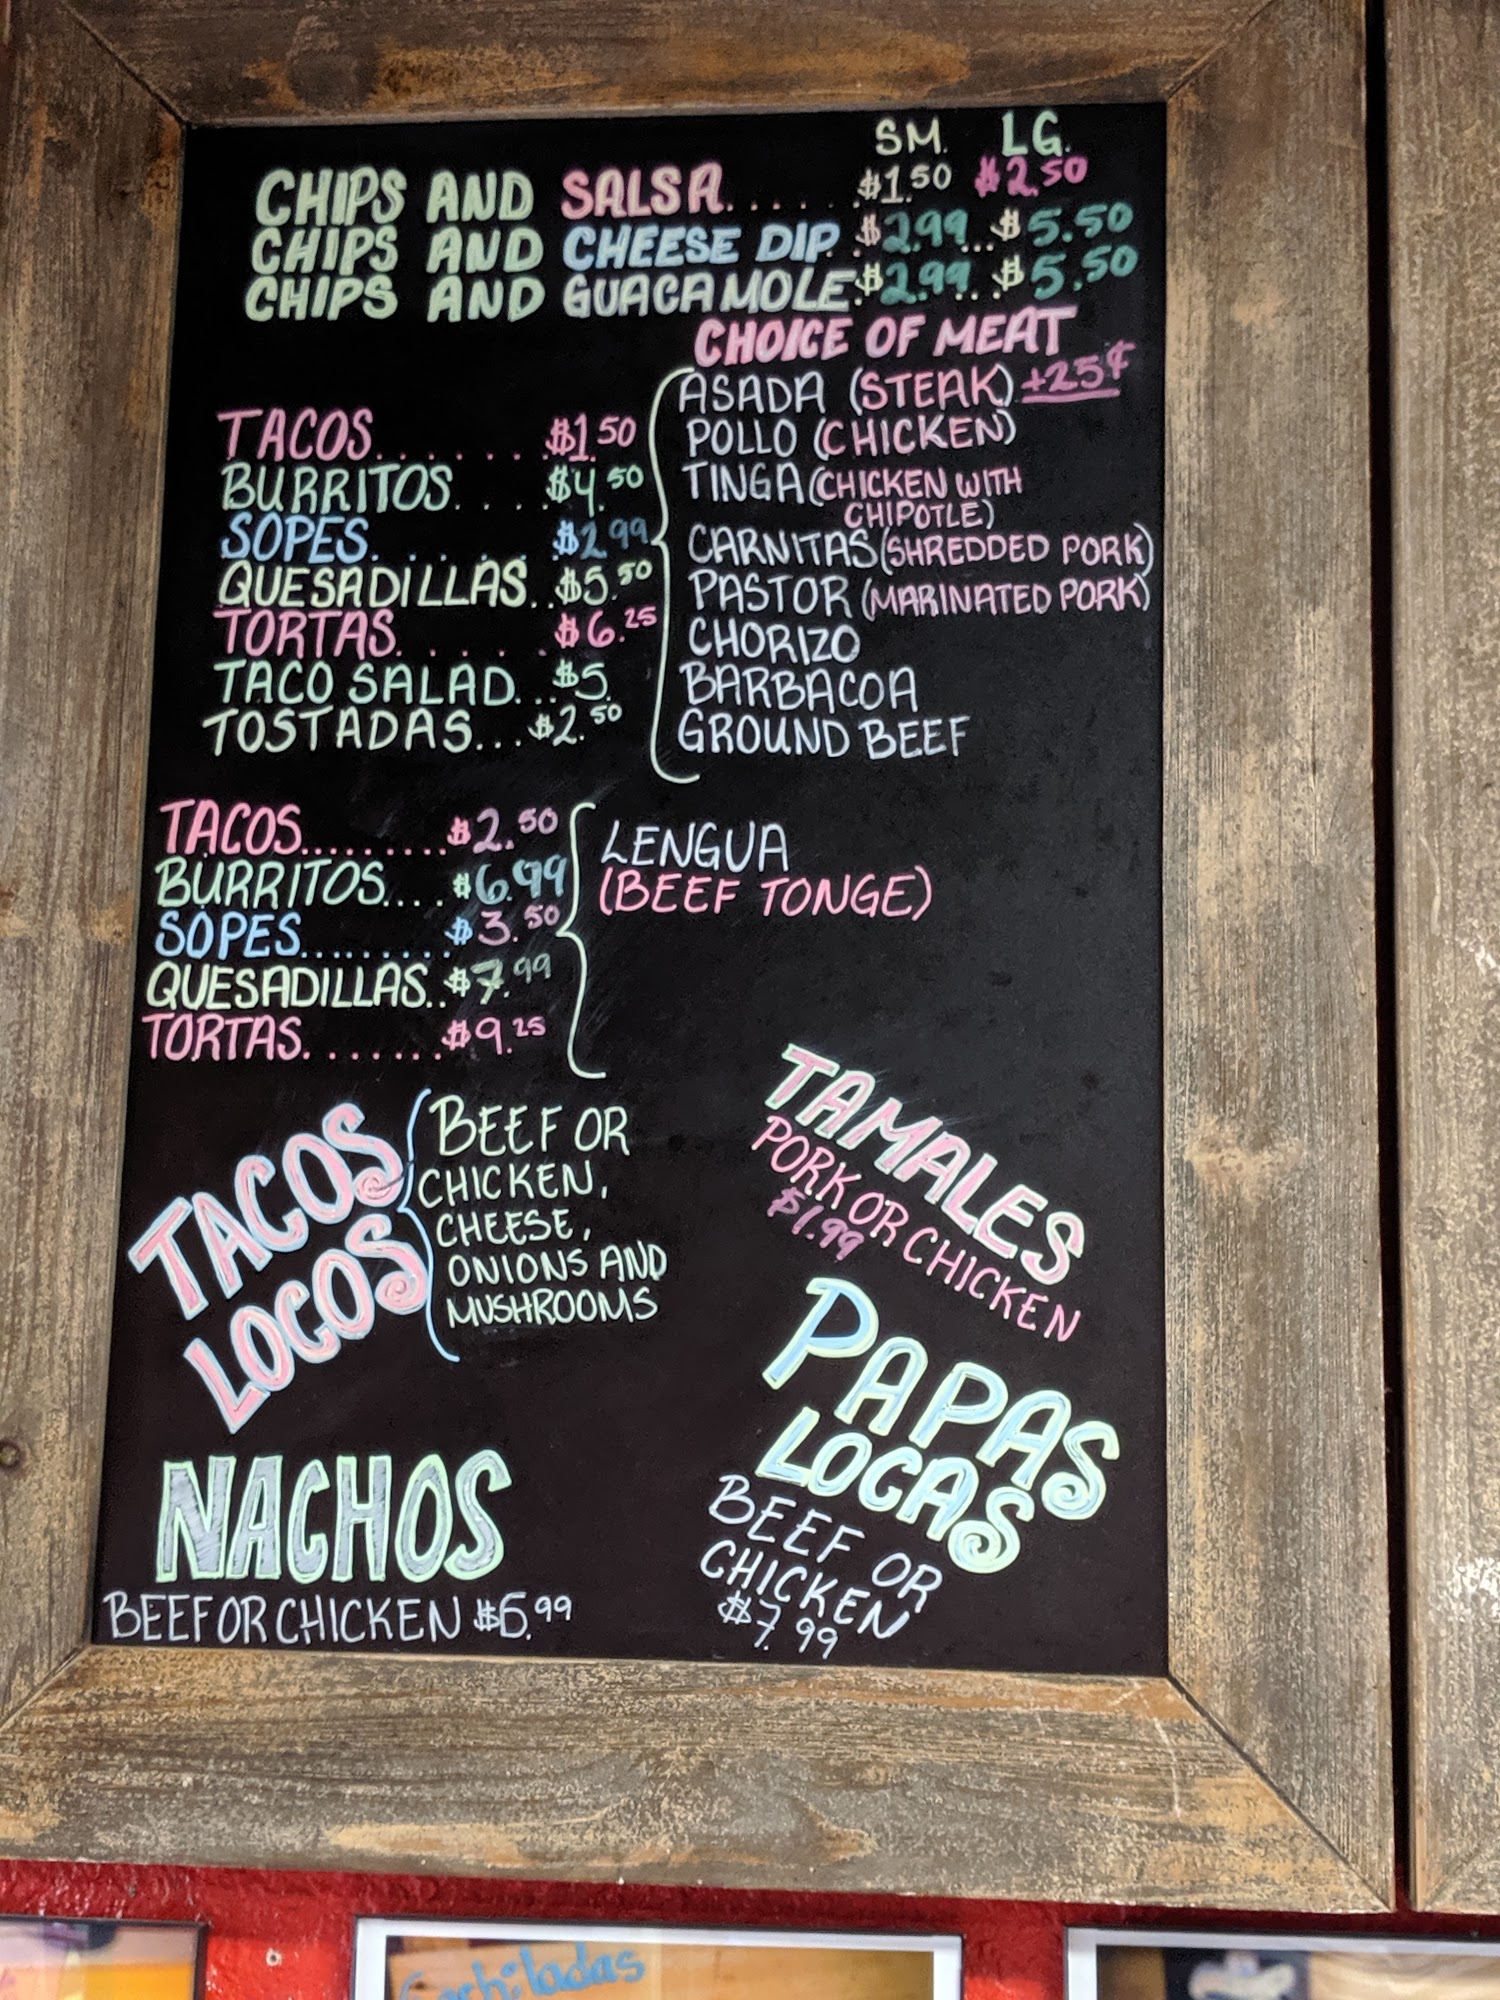 SM. LG.
CHIPS AND SALSA...... $1.50 $2.50
CHIPS AND CHEESE DIP..$2.99...$5.50
CHIPS AND GUACAMOLE.$2.99...$5.50
CHOICE OF MEAT
ASADA (STEAK) +25¢
POLLO (CHICKEN)
TINGA (CHICKEN WITH
CHIPOTLE)
CARNITAS (SHREDDED PORK)
PASTOR (MARINATED PORK)
CHORIZO
BARBACOA
GROUND BEEF
TACOS.......$1.50
BURRITOS....$4.50
SOPES......$2.99
QUESADILLAS..$5.50
TORTAS......$6.25
TACO SALAD...$5.
TOSTADAS...$2.50
TACOS.........$2.50
BURRITOS....$6.99
SOPES.........$3.50
QUESADILLAS..$7.99
TORTAS.......$9.25
LENGUA
(BEEF TONGE)
TACOS
LOCOS
BEEF OR
CHICKEN,
CHEESE,
ONIONS AND
MUSHROOMS
TAMALES
PORK OR CHICKEN
$1.99
PAPAS
LOCAS
BEEF OR
CHICKEN
$7.99
NACHOS
BEEF OR CHICKEN $6.99